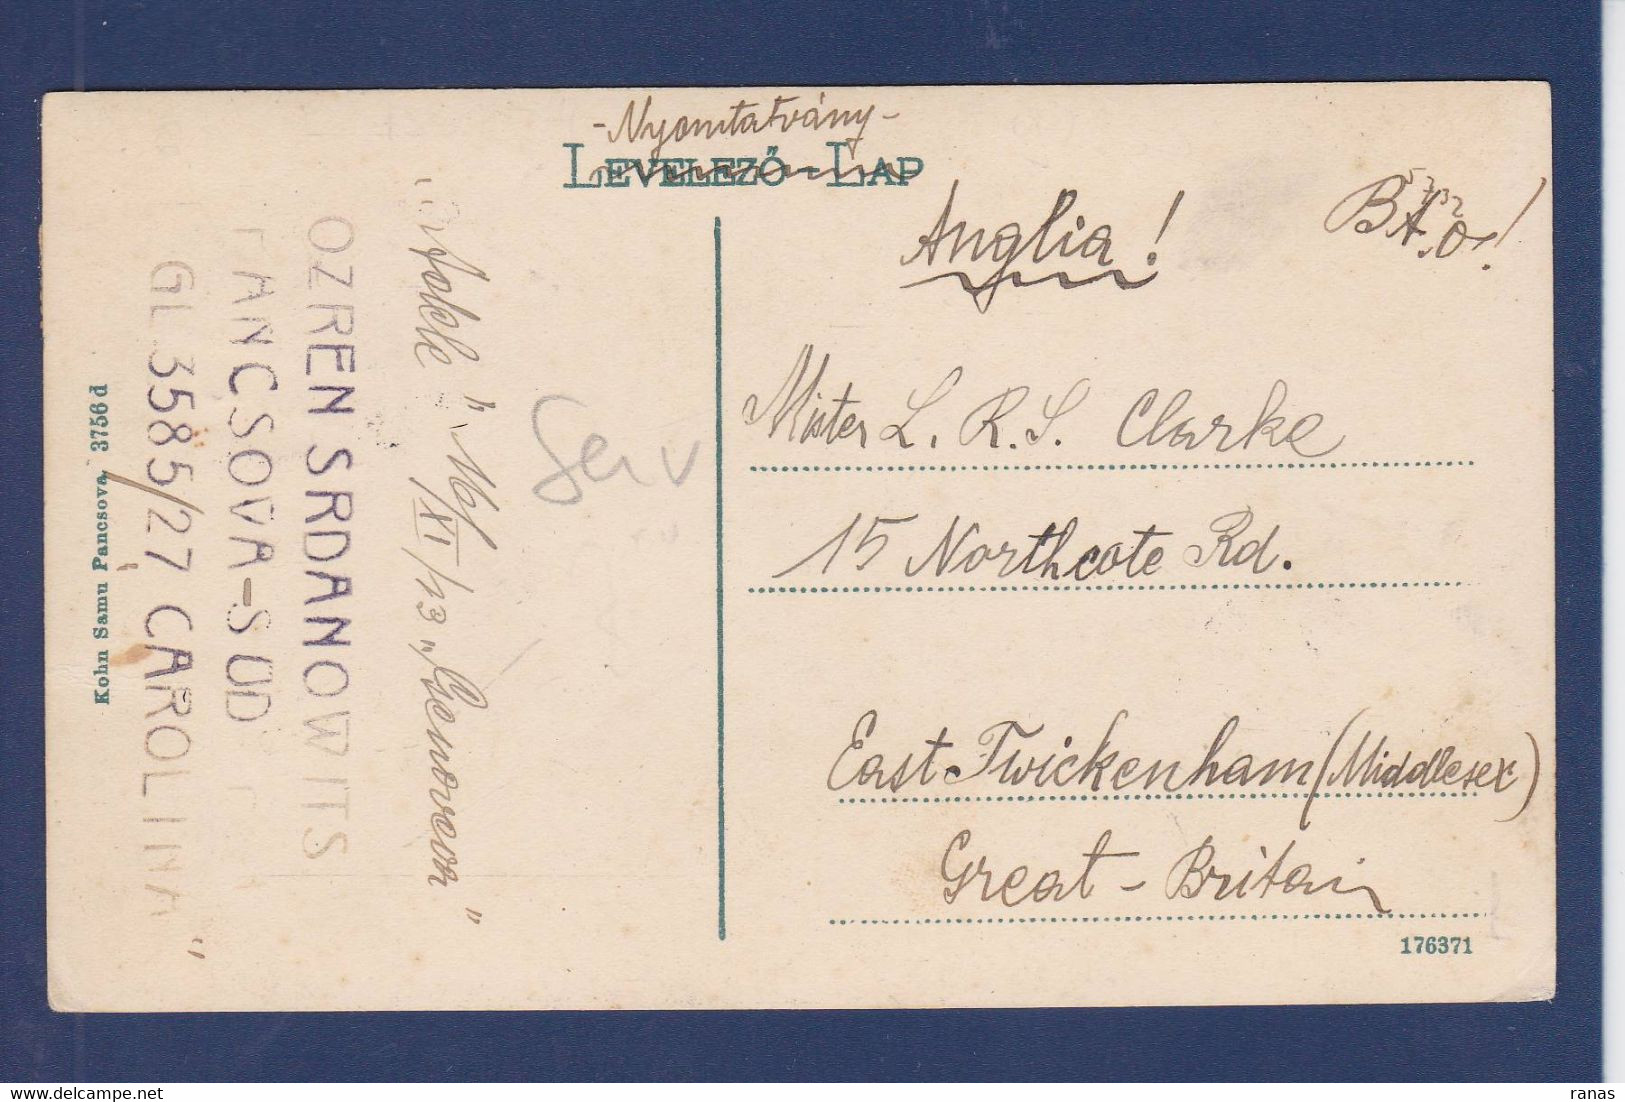 -Nyomtatvány-
LEVELEZŐ-LAP
Anglia!
Mister L. R. S. Clarke
15 Northcote Rd.
East-Twickenham (Middlesex)
Great-Britain
176371
Serv
XI/13
OZREN SRDANOWITS
PANCSOVA-SÜD
GL 3585/27 CAROLINA
Kohn Samu Pancsova, 3756 d
ranas